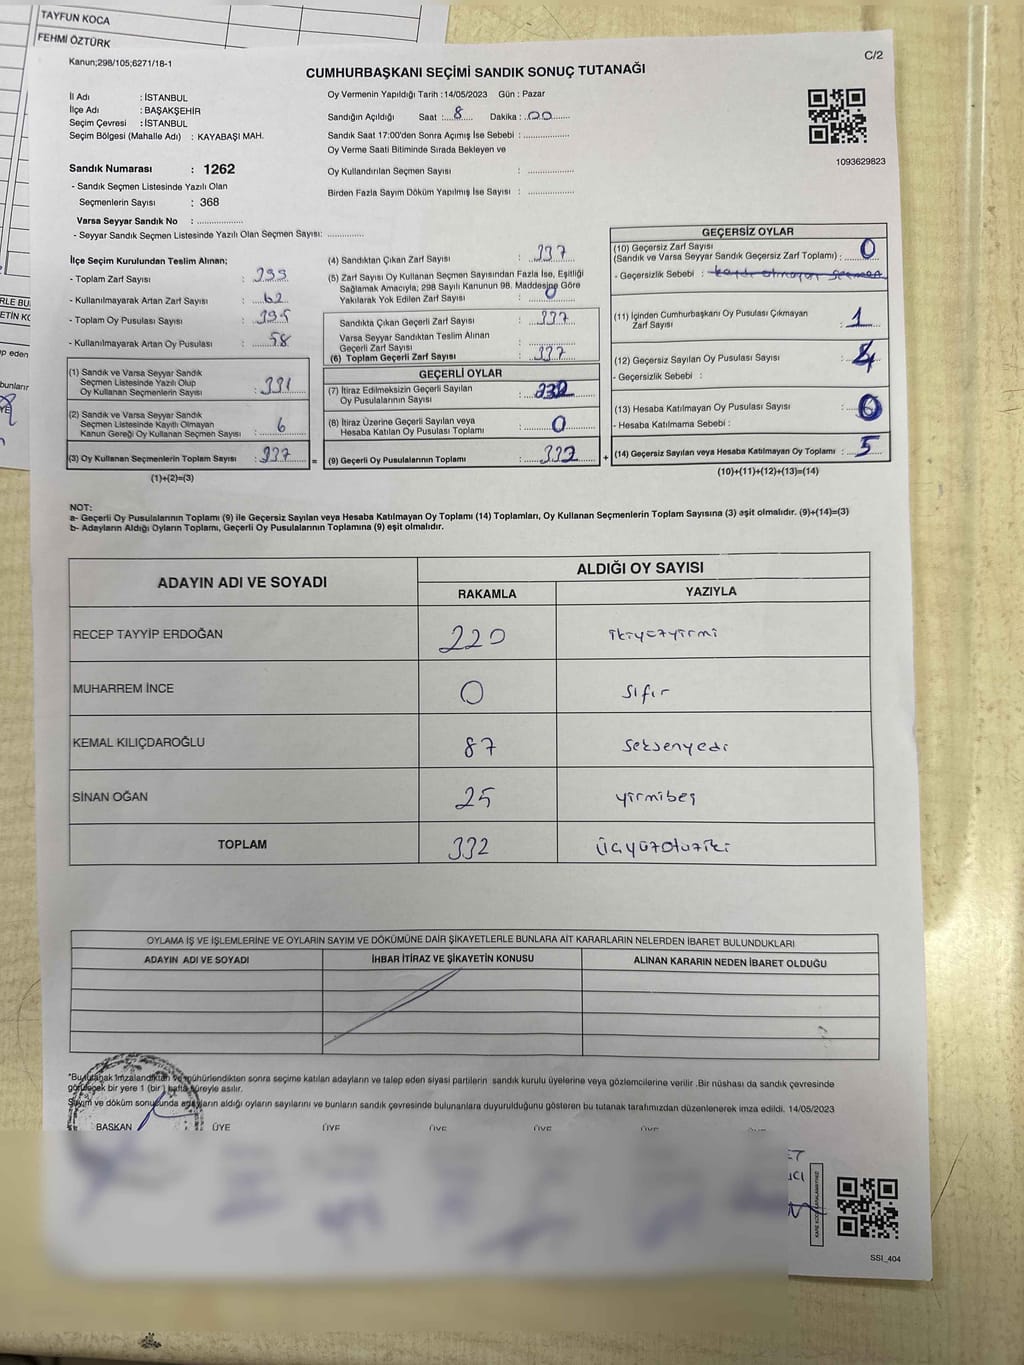 TAYFUN KOCA
FEHMİ ÖZTÜRK
Kanun;298/105;6271/18-1
C/2
CUMHURBAŞKANI SEÇİMİ SANDIK SONUÇ TUTANAĞI
İl Adı : İSTANBUL
İlçe Adı : BAŞAKŞEHİR
Seçim Çevresi : İSTANBUL
Seçim Bölgesi (Mahalle Adı) : KAYABAŞI MAH.
Sandık Numarası : 1262
- Sandık Seçmen Listesinde Yazılı Olan
Seçmenlerin Sayısı : 368
Varsa Seyyar Sandık No : ....................
- Seyyar Sandık Seçmen Listesinde Yazılı Olan Seçmen Sayısı: ...............
Oy Vermenin Yapıldığı Tarih :14/05/2023 Gün : Pazar
Sandığın Açıldığı Saat : 8 Dakika : 00
Sandık Saat 17:00'den Sonra Açımış İse Sebebi : ...................
Oy Verme Saati Bitiminde Sırada Bekleyen ve
Oy Kullandırılan Seçmen Sayısı : ...................
Birden Fazla Sayım Döküm Yapılmış İse Sayısı : ...................
1093629823
İlçe Seçim Kurulundan Teslim Alınan;
- Toplam Zarf Sayısı : 399
- Kullanılmayarak Artan Zarf Sayısı : 62
- Toplam Oy Pusulası Sayısı : 395
- Kullanılmayarak Artan Oy Pusulası : 58
(1) Sandık ve Varsa Seyyar Sandık
Seçmen Listesinde Yazılı Olup
Oy Kullanan Seçmenlerin Sayısı : 331
(2) Sandık ve Varsa Seyyar Sandık
Seçmen Listesinde Kayıtlı Olmayan
Kanun Gereği Oy Kullanan Seçmen Sayısı : 6
(3) Oy Kullanan Seçmenlerin Toplam Sayısı : 337 =
(1)+(2)=(3)
(4) Sandıktan Çıkan Zarf Sayısı : 337
(5) Zarf Sayısı Oy Kullanan Seçmen Sayısından Fazla İse, Eşitliği
Sağlamak Amacıyla; 298 Sayılı Kanunun 98. Maddesine Göre
Yakılarak Yok Edilen Zarf Sayısı : 0
Sandıkta Çıkan Geçerli Zarf Sayısı : 337
Varsa Seyyar Sandıktan Teslim Alınan
Geçerli Zarf Sayısı :
(6) Toplam Geçerli Zarf Sayısı : 337
GEÇERLİ OYLAR
(7) İtiraz Edilmeksizin Geçerli Sayılan
Oy Pusulalarının Sayısı : 332
(8) İtiraz Üzerine Geçerli Sayılan veya
Hesaba Katılan Oy Pusulası Toplamı : 0
(9) Geçerli Oy Pusulalarının Toplamı : 332 +
GEÇERSİZ OYLAR
(10) Geçersiz Zarf Sayısı
(Sandık ve Varsa Seyyar Sandık Geçersiz Zarf Toplamı) : 0
- Geçersizlik Sebebi : kaydı olmayan seçmen
(11) İçinden Cumhurbaşkanı Oy Pusulası Çıkmayan
Zarf Sayısı : 1
(12) Geçersiz Sayılan Oy Pusulası Sayısı : 4
- Geçersizlik Sebebi :
(13) Hesaba Katılmayan Oy Pusulası Sayısı : 0
- Hesaba Katılmama Sebebi :
(14) Geçersiz Sayılan veya Hesaba Katılmayan Oy Toplamı : 5
(10)+(11)+(12)+(13)=(14)
NOT:
a- Geçerli Oy Pusulalarının Toplamı (9) ile Geçersiz Sayılan veya Hesaba Katılmayan Oy Toplamı (14) Toplamları, Oy Kullanan Seçmenlerin Toplam Sayısına (3) eşit olmalıdır. (9)+(14)=(3)
b- Adayların Aldığı Oyların Toplamı, Geçerli Oy Pusulalarının Toplamına (9) eşit olmalıdır.
ADAYIN ADI VE SOYADI
ALDIĞI OY SAYISI
RAKAMLA YAZIYLA
RECEP TAYYİP ERDOĞAN 220 ikiyüzyirmi
MUHARREM İNCE 0 Sıfır
KEMAL KILIÇDAROĞLU 87 seksenyedi
SİNAN OĞAN 25 yirmibeş
TOPLAM 332 üçyüzotuziki
OYLAMA İŞ VE İŞLEMLERİNE VE OYLARIN SAYIM VE DÖKÜMÜNE DAİR ŞİKAYETLERLE BUNLARA AİT KARARLARIN NELERDEN İBARET BULUNDUKLARI
ADAYIN ADI VE SOYADI İHBAR İTİRAZ VE ŞİKAYETİN KONUSU ALINAN KARARIN NEDEN İBARET OLDUĞU
"Bu tutanak imzalandıktan ve mühürlendikten sonra seçime katılan adayların ve talep eden siyasi partilerin sandık kurulu üyelerine veya gözlemcilerine verilir .Bir nüshası da sandık çevresinde
görülecek bir yere 1 (bir) hafta süreyle asılır.
Sayım ve döküm sonucunda adayların aldığı oyların sayılarını ve bunların sandık çevresinde bulunanlara duyurulduğunu gösteren bu tutanak tarafımızdan düzenlenerek imza edildi. 14/05/2023
BAŞKAN ÜYE ÜYE ÜYE ÜYE ÜYE ÜYE
SSI_404